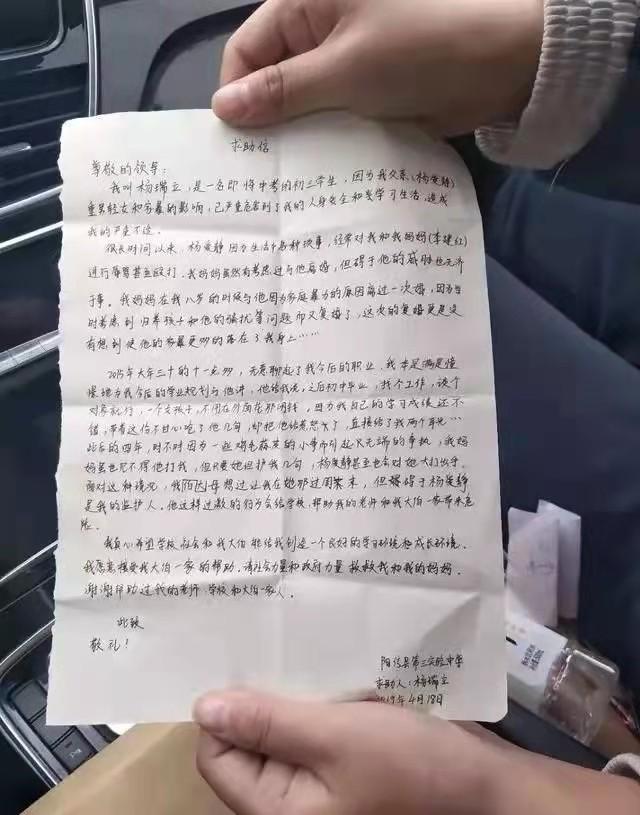 求助信
尊敬的领导:
我叫杨瑞立,是一名即将中考的初三学生,因为我父亲(杨受静)
重男轻女和家暴的影响,已严重危害到了我的人身安全和受学习生活,造成
我的严重不适。
很长时间以来,杨受静因为生活中各种琐事,经常对我和我妈妈(李建红)
进行辱骂甚至殴打。我妈妈虽然有考虑过与他离婚,但碍于他的威胁也无济
于事。我妈妈在我八岁的时候与他因为家庭暴力的原因离过一次婚,因为当
时考虑到归养孩子和他的骚扰等问题而又复婚了,这次的复婚更是没
有想到使他的家暴更多的落在了我身上……
2015年大年三十的十一点多,无意聊起了我今后的职业,我本是满是憧
憬地为我今后的学业规划与他讲,他给我说,之后初中毕业,找个工作,谈个
对象就行,一个女孩子,不用在外面花那闲钱,因为我自己的学习成绩还不
错,带着这份不甘心吃了他几句,却把他给惹怒了,直接给了我两个耳光…
此后的四年,时不时因为一些鸡毛蒜皮的小事而引起欠无端的争执,我妈
妈虽也见不得他打我,但只要她但护我几句,杨受静甚至也会对她大打出手。
面对这种情况,我伯母想过让我在她那过周末,但碍得于杨受静
是我的监护人。他这样过激的行为会给学校,帮助我的老师和我大伯一家带来危
险。
我真心希望学校,社会和我大伯能给我创造一个良好的学习环境和成长环境。
我愿意接受我大伯一家的帮助。请社会力量和政府力量救救我和我的妈妈。
谢谢帮助过我的老师,学校和大伯一家人。
此致
敬礼!
阳信县第三实验中学
求助人:杨瑞立
2019年4月18日